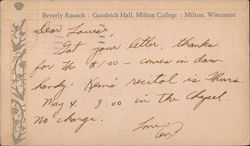 Beverly Ruosch : Goodrich Hall, Milton College : Milton, Wisconsin
Dear Louise,
Got your letter, thanks
for the $1.00 – comes in darn
handy. Kern's recital is Thurs.
May 4. 8:00 in the Chapel.
No charge.
Love
Bev